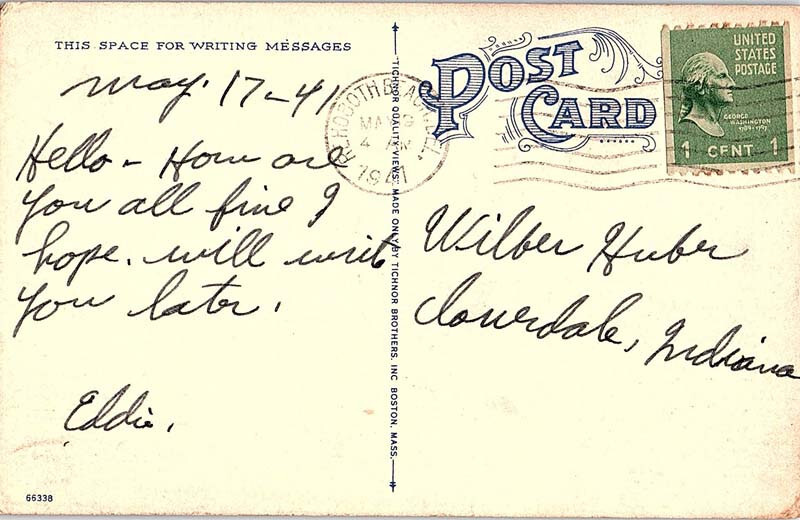 THIS SPACE FOR WRITING MESSAGES
May 17-41
Hello - How are
you all fine I
hope. will write
you later.
Eddie.
66338
TICHNOR QUALITY VIEWS, MADE ONLY BY TICHNOR BROTHERS, INC BOSTON, MASS.
POST
CARD
REHOBOTH BEACH, DEL.
MAY
4
1941
UNITED
STATES
POSTAGE
GEORGE
WASHINGTON
1789-1797
1 CENT 1
Wilber Huber
Cloverdale, Indiana